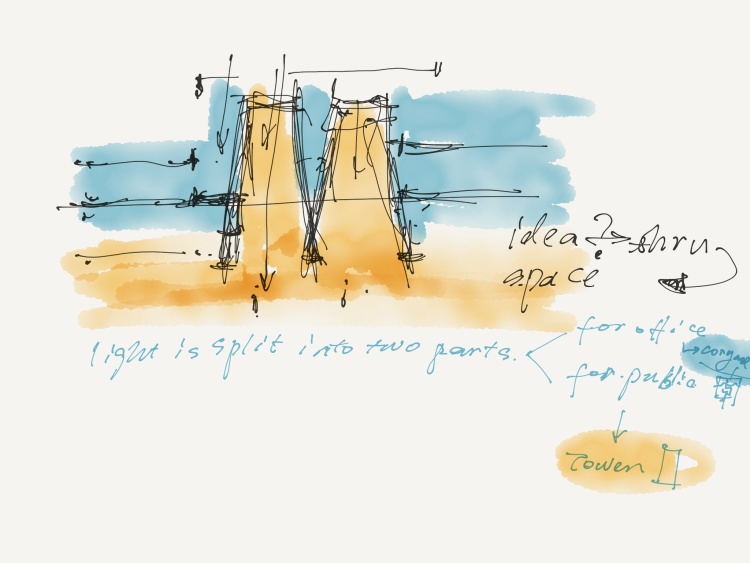 idea ? → thru
space
light is split into two parts.
for office
for public
Tower